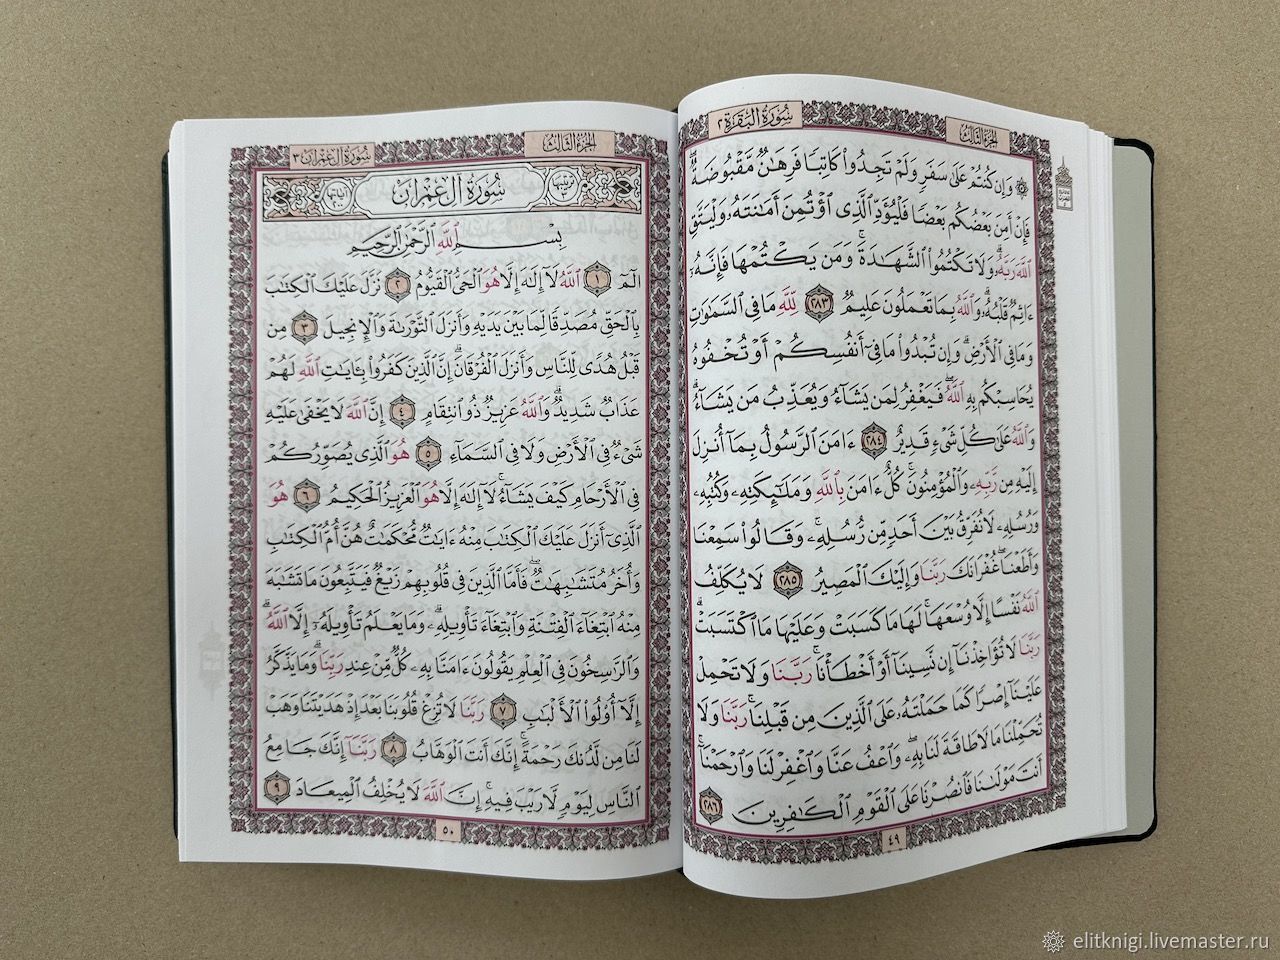 سُورَةُ البَقَرَةِ ٢
الجُزءُ الثَّالِثُ
۞ وَإِن كُنتُمْ عَلَىٰ سَفَرٍ وَلَمْ تَجِدُوا۟ كَاتِبًا فَرِهَـٰنٌ مَّقْبُوضَةٌ ۖ
فَإِنْ أَمِنَ بَعْضُكُم بَعْضًا فَلْيُؤَدِّ ٱلَّذِى ٱؤْتُمِنَ أَمَـٰنَتَهُۥ وَلْيَتَّقِ
ٱللَّهَ رَبَّهُۥ ۗ وَلَا تَكْتُمُوا۟ ٱلشَّهَـٰدَةَ ۚ وَمَن يَكْتُمْهَا فَإِنَّهُۥٓ
ءَاثِمٌ قَلْبُهُۥ ۗ وَٱللَّهُ بِمَا تَعْمَلُونَ عَلِيمٌ ٢٨٣ لِّلَّهِ مَا فِى ٱلسَّمَـٰوَٰتِ
وَمَا فِى ٱلْأَرْضِ ۗ وَإِن تُبْدُوا۟ مَا فِىٓ أَنفُسِكُمْ أَوْ تُخْفُوهُ
يُحَاسِبْكُم بِهِ ٱللَّهُ ۖ فَيَغْفِرُ لِمَن يَشَآءُ وَيُعَذِّبُ مَن يَشَآءُ ۗ
وَٱللَّهُ عَلَىٰ كُلِّ شَىْءٍ قَدِيرٌ ٢٨٤ ءَامَنَ ٱلرَّسُولُ بِمَآ أُنزِلَ
إِلَيْهِ مِن رَّبِّهِۦ وَٱلْمُؤْمِنُونَ ۚ كُلٌّ ءَامَنَ بِٱللَّهِ وَمَلَـٰٓئِكَتِهِۦ وَكُتُبِهِۦ
وَرُسُلِهِۦ لَا نُفَرِّقُ بَيْنَ أَحَدٍ مِّن رُّسُلِهِۦ ۚ وَقَالُوا۟ سَمِعْنَا
وَأَطَعْنَا ۖ غُفْرَانَكَ رَبَّنَا وَإِلَيْكَ ٱلْمَصِيرُ ٢٨٥ لَا يُكَلِّفُ
ٱللَّهُ نَفْسًا إِلَّا وُسْعَهَا ۚ لَهَا مَا كَسَبَتْ وَعَلَيْهَا مَا ٱكْتَسَبَتْ ۗ
رَبَّنَا لَا تُؤَاخِذْنَآ إِن نَّسِينَآ أَوْ أَخْطَأْنَا ۚ رَبَّنَا وَلَا تَحْمِلْ
عَلَيْنَآ إِصْرًا كَمَا حَمَلْتَهُۥ عَلَى ٱلَّذِينَ مِن قَبْلِنَا ۚ رَبَّنَا وَلَا
تُحَمِّلْنَا مَا لَا طَاقَةَ لَنَا بِهِۦ ۖ وَٱعْفُ عَنَّا وَٱغْفِرْ لَنَا وَٱرْحَمْنَآ ۚ
أَنتَ مَوْلَىٰنَا فَٱنصُرْنَا عَلَى ٱلْقَوْمِ ٱلْكَـٰفِرِينَ ٢٨٦
٤٩
الجُزءُ الثَّالِثُ
سُورَةُ آلِ عِمْرَانَ ٣
سُورَةُ آلِ عِمْرَانَ
بِسْمِ ٱللَّهِ ٱلرَّحْمَـٰنِ ٱلرَّحِيمِ
الٓمٓ ١ ٱللَّهُ لَآ إِلَـٰهَ إِلَّا هُوَ ٱلْحَىُّ ٱلْقَيُّومُ ٢ نَزَّلَ عَلَيْكَ ٱلْكِتَـٰبَ
بِٱلْحَقِّ مُصَدِّقًا لِّمَا بَيْنَ يَدَيْهِ وَأَنزَلَ ٱلتَّوْرَىٰةَ وَٱلْإِنجِيلَ ٣ مِن
قَبْلُ هُدًى لِّلنَّاسِ وَأَنزَلَ ٱلْفُرْقَانَ ۗ إِنَّ ٱلَّذِينَ كَفَرُوا۟ بِـَٔايَـٰتِ ٱللَّهِ لَهُمْ
عَذَابٌ شَدِيدٌ ۗ وَٱللَّهُ عَزِيزٌ ذُو ٱنتِقَامٍ ٤ إِنَّ ٱللَّهَ لَا يَخْفَىٰ عَلَيْهِ
شَىْءٌ فِى ٱلْأَرْضِ وَلَا فِى ٱلسَّمَآءِ ٥ هُوَ ٱلَّذِى يُصَوِّرُكُمْ
فِى ٱلْأَرْحَامِ كَيْفَ يَشَآءُ ۚ لَآ إِلَـٰهَ إِلَّا هُوَ ٱلْعَزِيزُ ٱلْحَكِيمُ ٦ هُوَ
ٱلَّذِىٓ أَنزَلَ عَلَيْكَ ٱلْكِتَـٰبَ مِنْهُ ءَايَـٰتٌ مُّحْكَمَـٰتٌ هُنَّ أُمُّ ٱلْكِتَـٰبِ
وَأُخَرُ مُتَشَـٰبِهَـٰتٌ ۖ فَأَمَّا ٱلَّذِينَ فِى قُلُوبِهِمْ زَيْغٌ فَيَتَّبِعُونَ مَا تَشَـٰبَهَ
مِنْهُ ٱبْتِغَآءَ ٱلْفِتْنَةِ وَٱبْتِغَآءَ تَأْوِيلِهِۦ ۗ وَمَا يَعْلَمُ تَأْوِيلَهُۥٓ إِلَّا ٱللَّهُ ۗ
وَٱلرَّٰسِخُونَ فِى ٱلْعِلْمِ يَقُولُونَ ءَامَنَّا بِهِۦ كُلٌّ مِّنْ عِندِ رَبِّنَا ۗ وَمَا يَذَّكَّرُ
إِلَّآ أُو۟لُوا۟ ٱلْأَلْبَـٰبِ ٧ رَبَّنَا لَا تُزِغْ قُلُوبَنَا بَعْدَ إِذْ هَدَيْتَنَا وَهَبْ
لَنَا مِن لَّدُنكَ رَحْمَةً ۚ إِنَّكَ أَنتَ ٱلْوَهَّابُ ٨ رَبَّنَآ إِنَّكَ جَامِعُ
ٱلنَّاسِ لِيَوْمٍ لَّا رَيْبَ فِيهِ ۚ إِنَّ ٱللَّهَ لَا يُخْلِفُ ٱلْمِيعَادَ ٩
٥٠
elitknigi.livemaster.ru